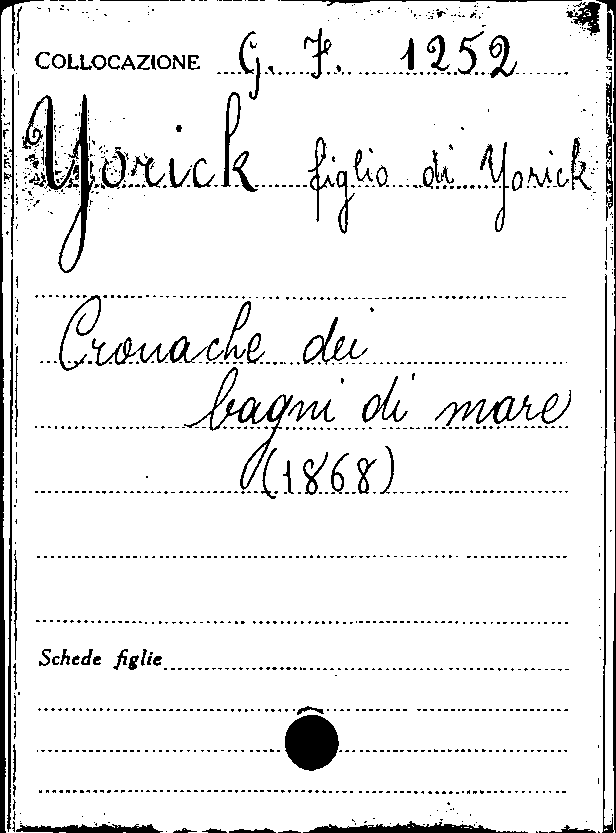 COLLOCAZIONE G. F. 1252
Yorick figlio di Yorick
Cronache dei
bagni di mare
(1868)
Schede figlie